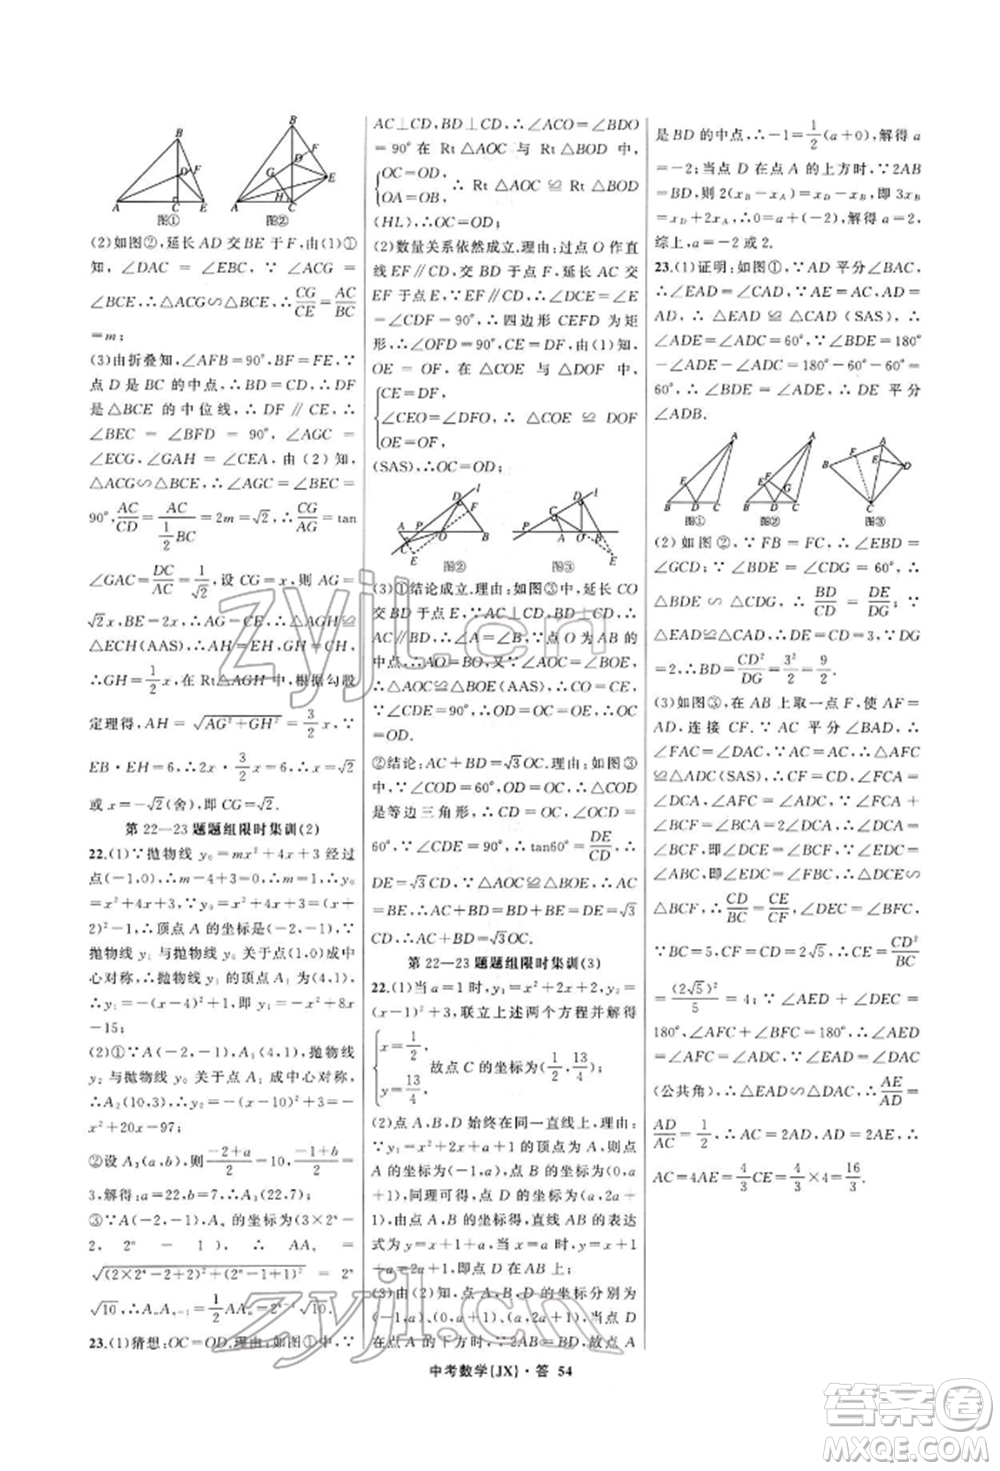 图① 图②
(2)如图②,延长 AD 交 BE 于 F,由(1)①
知, ∠DAC = ∠EBC, ∵ ∠ACG =
∠BCE,∴△ACG∽△BCE,∴CG/CE=AC/BC
=m;
(3)由折叠知,∠AFB=90°,BF=FE,∵
点 D 是 BC 的中点,∴ DF
是△BCE 的中位线,∴ DF // CE,∴
∠BEC = ∠BFD = 90°, ∠AGC =
∠ECG,∠GAH = ∠CEA,由(2)知,
△ACG∽△BCE,∴ ∠AGC = ∠BEC =
90°,AC/CD=AC/(1/2 BC)=2m=√2,∴CG/AG=tan
∠GAC=DC/AC=1/√2,设 CG = x,则 AG =
√2x,BE=2x,∴AG=CE,∴△AGH≌
△ECH(AAS),∴AH=EH,GH=CH,
∴GH=1/2x,在 Rt△AGH 中,根据勾股
定理得,AH = √(AG²+GH²) = 3/2x,∵
EB·EH=6,∴2x·3/2x=6,∴x=√2
或 −√2(舍),即 CG=√2.
第 22—23 题题组限时集训(2)
22.(1)∵抛物线 y₀=mx²+4x+3 经过
点(−2,−1),∴4m−8+3=−1,∴y₀
=x²+4x+3=(x+
2)²−1,∴顶点 A 的坐标是(−2,−1),∵
抛物线 y₁ 与抛物线 y₀ 关于点(1,0)成中
心对称,∴抛物线 y₁ 的顶点 A₁(4,1),
∴y₁=−(x−4)²+1=−x²+8x
−15;
(2)①∵A(−2,−1),A₁(4,1),抛物线
y₂ 与抛物线 y₁ 关于点 A₁ 成中心对称,
∴A₂(10,3),∴y₂=(x−10)²+3,即
−x²+20x−97;
②设 A₃(a,b),则(−2+a)/2=10,(−1+b)/2=
3,解得:a=22,b=7,∴A₃(22,7);
③∵A(−2,−1),Aₙ 的坐标为(3×2ⁿ−
2, 2ⁿ − 1), ∴ AAₙ =
√((2×2ⁿ−2+2)²+(2ⁿ−1+1)²) = 2ⁿ
√10,∴AₙAₙ₋₁=1/2AAₙ=2ⁿ⁻¹√10.
23.(1)猜想:OC=OD.理由:如图①中,∵
AC⊥CD,BD⊥CD,∴∠ACO=∠BDO
= 90° 在 Rt △AOC 与 Rt △BOD 中,
{OC=OD,
OA=OB, ∴ Rt △AOC ≌ Rt △BOD
(HL),∴OC=OD;
(2)数量关系依然成立.理由:过点 O 作直
线 EF // CD,交 BD 于点 F,延长 AC 交
EF 于点 E,∵EF // CD,∴∠DCE=∠E
= ∠CDF = 90°,∴ 四边形 CEFD 为矩
形,∴∠OFD=90°,CE=DF,由(1)知,
OE = OF,在 △COE 与 △DOF 中,
{CE=DF,
∠CEO=∠DFO, ∴ △COE ≌ △DOF
OE=OF,
(SAS),∴OC=OD;
图② 图③
(3)①结论成立.理由:如图③中,延长 CO
交 BD 于点 E,∵AC⊥CD,BD⊥CD,
∴AC//BD,∴∠A=∠B,∵点 O 为 AB 的中点,
∴AO=BO,又∵∠AOC=∠BOE,
∴△AOC≌△BOE(AAS),∴OC=OE,
∵∠CDE=90°,∴OD=OC=OE,∴OC=
OD.
②结论:AC+BD=√3OC.理由:如图③
中,∵∠COD=60°,OD=OC,∴△COD
是等边三角形,∴ CD = OC,∠OCD =
60°,∵∠CDE=90°,∴tan60°=DE/CD,∴
DE=√3CD,∵△AOC≌△BOE,∴AC=
BE,∴AC+BD=BE+BD=DE=√3
CD,∴AC+BD=√3OC.
第 22—23 题题组限时集训(3)
22.(1)当 a=1 时,y₁=x²+2x+2,y₂=
(x−1)²+3,联立上述两个方程并解得
{x=1/2,
y=13/4, 故点 C 的坐标为(1/2,13/4);
(2)点 A,B,D 始终在同一直线上.理由:
∵y₁=x²+2x+a+1 的顶点为 A,则点
A 的坐标为(−1,a),点 B 的坐标为(0,a
+1),同理可得,点 D 的坐标为(1,a+2),
由点 A,B 的坐标得,直线 AB 的表达
式为 y=x+1+a,当 x=1 时,y=x+1
+a=2+a,故点 D 在直线 AB 上;
(3)由(2)知,点 A,B,D 的坐标分别为
(−1,a),(0,a+1),(a,2a+1),当点 D
在点 A 的下方时,∵2AB=AD,故点 A
是 BD 的中点,∴−1=1/2(a+0),解得 a
=−2;当点 D 在点 A 的上方时,∵2AB
=BD,则 2(x_B−x_A)=x_D−x_B,即 3x_B
=x_D+2x_A,∴0=a+(−2),解得 a=2,
综上,a=−2 或 2.
23.(1)证明:如图①,∵AD 平分∠BAC,
∴∠EAD=∠CAD,∵AE=AC,AD=
AD,∴ △EAD ≌ △CAD (SAS),∴
∠ADE=∠ADC=60°,∵∠BDE=180°
−∠ADE−∠ADC=180°−60°−
60° = 60°,∴∠BDE = ∠ADE,∴DE 平分
∠ADB.
图① 图② 图③
(2) 如图②, ∵ FB = FC, ∴ ∠EBD =
∠GCD,∵∠BDE = ∠CDG = 60°,∴
△BDE ∽ △CDG, ∴ BD/CD = DE/DG; ∵
△EAD≌△CAD,∴DE=CD=3,∵DG
=2,∴BD=CD²/DG=3²/2=9/2.
(3)如图③,在 AB 上取一点 F,使 AF=
AD,连接 CF.∵AC 平分∠BAD,∴
∠FAC=∠DAC,∵AC=AC,∴△AFC
≌△ADC(SAS),∴CF=CD,∠ACF=
∠ACD,∠AFC=∠ADC,∵∠ACF+
∠BCF=∠ACB=2∠DCA,∴∠DCA=
∠BCF,即∠DCE=∠BCF,∵∠EDC=
∠FBC,∴△DCE∽
△BCF,∴CD/BC=CE/CF,∠CED=∠BFC,
∵BC=5,CF=CD=2√5,∴CE=CD²/BC
=(2√5)²/5=4;∵∠AED+∠CED=
180°,∠AFC+∠BFC=180°,∴∠AED
=∠AFC=∠ADC,∵∠EAD=∠DAC
(公共角),∴△EAD∽△DAC,∴AE/AD=
AD/AC=1/2,∴AC=2AD,AD=2AE,∴
AC=4AE=4/3CE=4/3×4=16/3.
中考数学(JX)·答 54
zyjl.cn
zyjl.cn
答案圈
MXQE.COM